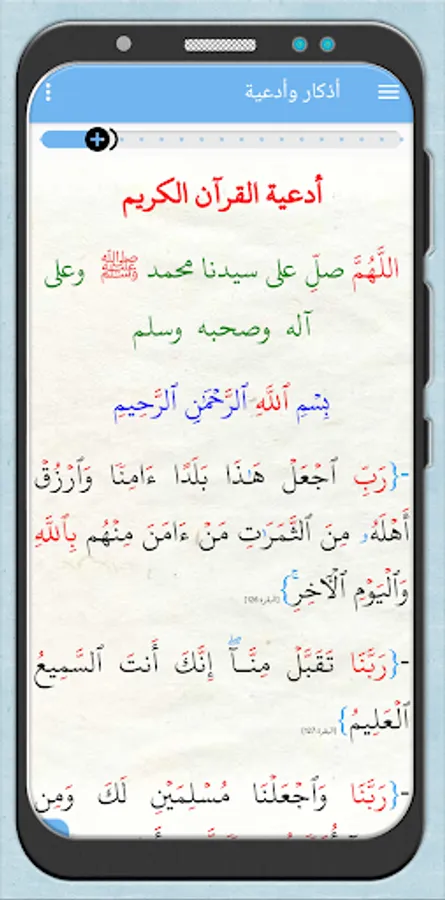 أذكار وأدعية
أدعية القرآن الكريم
اللَّهُمَّ صلِّ على سيدنا محمد ﷺ وعلى
آله وصحبه وسلم
بِسۡمِ ٱللَّهِ ٱلرَّحۡمَٰنِ ٱلرَّحِيمِ
-{رَبِّ ٱجۡعَلۡ هَٰذَا بَلَدًا ءَامِنٗا وَٱرۡزُقۡ
أَهۡلَهُۥ مِنَ ٱلثَّمَرَٰتِ مَنۡ ءَامَنَ مِنۡهُم بِٱللَّهِ
وَٱلۡيَوۡمِ ٱلۡأٓخِرِۚ} [البقرة:126]
-{رَبَّنَا تَقَبَّلۡ مِنَّآۖ إِنَّكَ أَنتَ ٱلسَّمِيعُ
ٱلۡعَلِيمُ} [البقرة:127]
-{رَبَّنَا وَٱجۡعَلۡنَا مُسۡلِمَيۡنِ لَكَ وَمِن